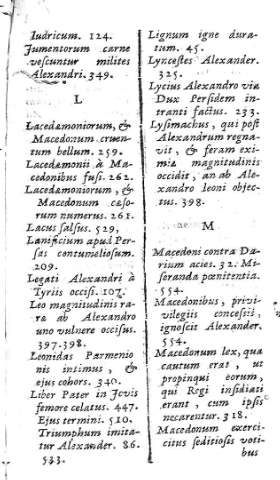 Iudricum. 124.
Jumentorum carne
vescuntur milites
Alexandri. 349.
L
Lacedæmoniorum, &
Macedonum cruen-
tum bellum. 259.
Lacedæmonii à Ma-
cedonibus fusi. 262.
Lacedæmoniorum, &
Macedonum cæso-
rum numerus. 261.
Lacus salsus. 529,
Lanificium apud Per-
sas contumeliosum.
209.
Legati Alexandri à
Tyriis occisi. 107.
Leo magnitudinis ra-
ræ ab Alexandro
uno vulnere occisus.
397.398.
Leonidas Parmenio
nis intimus, &
ejus cohors. 340.
Liber Pater in Jovis
femore celatus. 447.
Ejus termini. 510.
Triumphum imita-
tur Alexander. 86.
533.
Lignum igne dura-
tum. 45.
Lyncestes Alexander.
325.
Lycius Alexandro viæ
Dux Persidem in-
tranti factus. 233.
Lysimachus, qui post
Alexandrum regna-
vit, & feram exi-
miæ magnitudinis
occidit, an ab Ale-
xandro leoni objec-
tus. 398.
M
Macedoni contra Da-
rium acies. 32. Mi-
seranda pœnitentia.
554.
Macedonibus, privi-
vilegiis concessis,
ignoscit Alexander.
554.
Macedonum lex, qua
cautum erat, ut
propinqui eorum,
qui Regi insidiati
erant, cum ipsis
necarentur. 318.
Macedonum exerci-
citus seditiosis voti-
bus